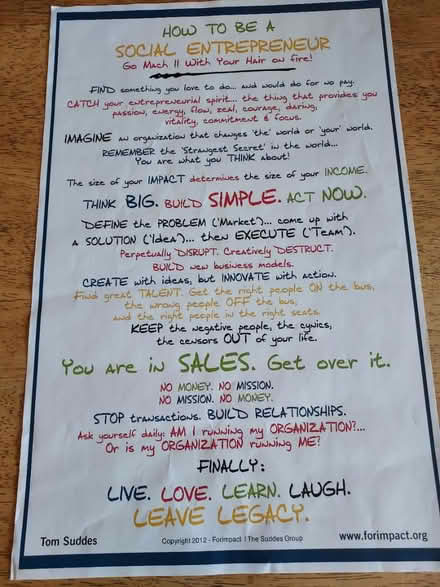 HOW TO BE A
SOCIAL ENTREPRENEUR
Go Mach II With Your Hair on fire!
FIND something you love to do... and would do for no pay.
CATCH your entrepreneurial spirit... the thing that provides you
passion, energy, flow, zeal, courage, daring,
vitality, commitment & focus.
IMAGINE an organization that changes 'the' world or 'your' world.
REMEMBER the 'Strangest Secret' in the world...
You are what you THINK about!
The size of your IMPACT determines the size of your INCOME.
THINK BIG. BUILD SIMPLE. ACT NOW.
DEFINE the PROBLEM ('Market')... come up with
a SOLUTION ('Idea')... then EXECUTE ('Team').
Perpetually DISRUPT. Creatively DESTRUCT.
BUILD new business models.
CREATE with ideas, but INNOVATE with action.
Find great TALENT. Get the right people ON the bus,
the wrong people OFF the bus,
and the right people in the right seats.
KEEP the negative people, the cynics,
the censors OUT of your life.
You are in SALES. Get over it.
NO MONEY. NO MISSION.
NO MISSION. NO MONEY.
STOP transactions. BUILD RELATIONSHIPS.
Ask yourself daily: AM I running my ORGANIZATION?...
Or is my ORGANIZATION running ME?
FINALLY:
LIVE. LOVE. LEARN. LAUGH.
LEAVE LEGACY.
Tom Suddes Copyright 2012 - Forimpact | The Suddes Group www.forimpact.org